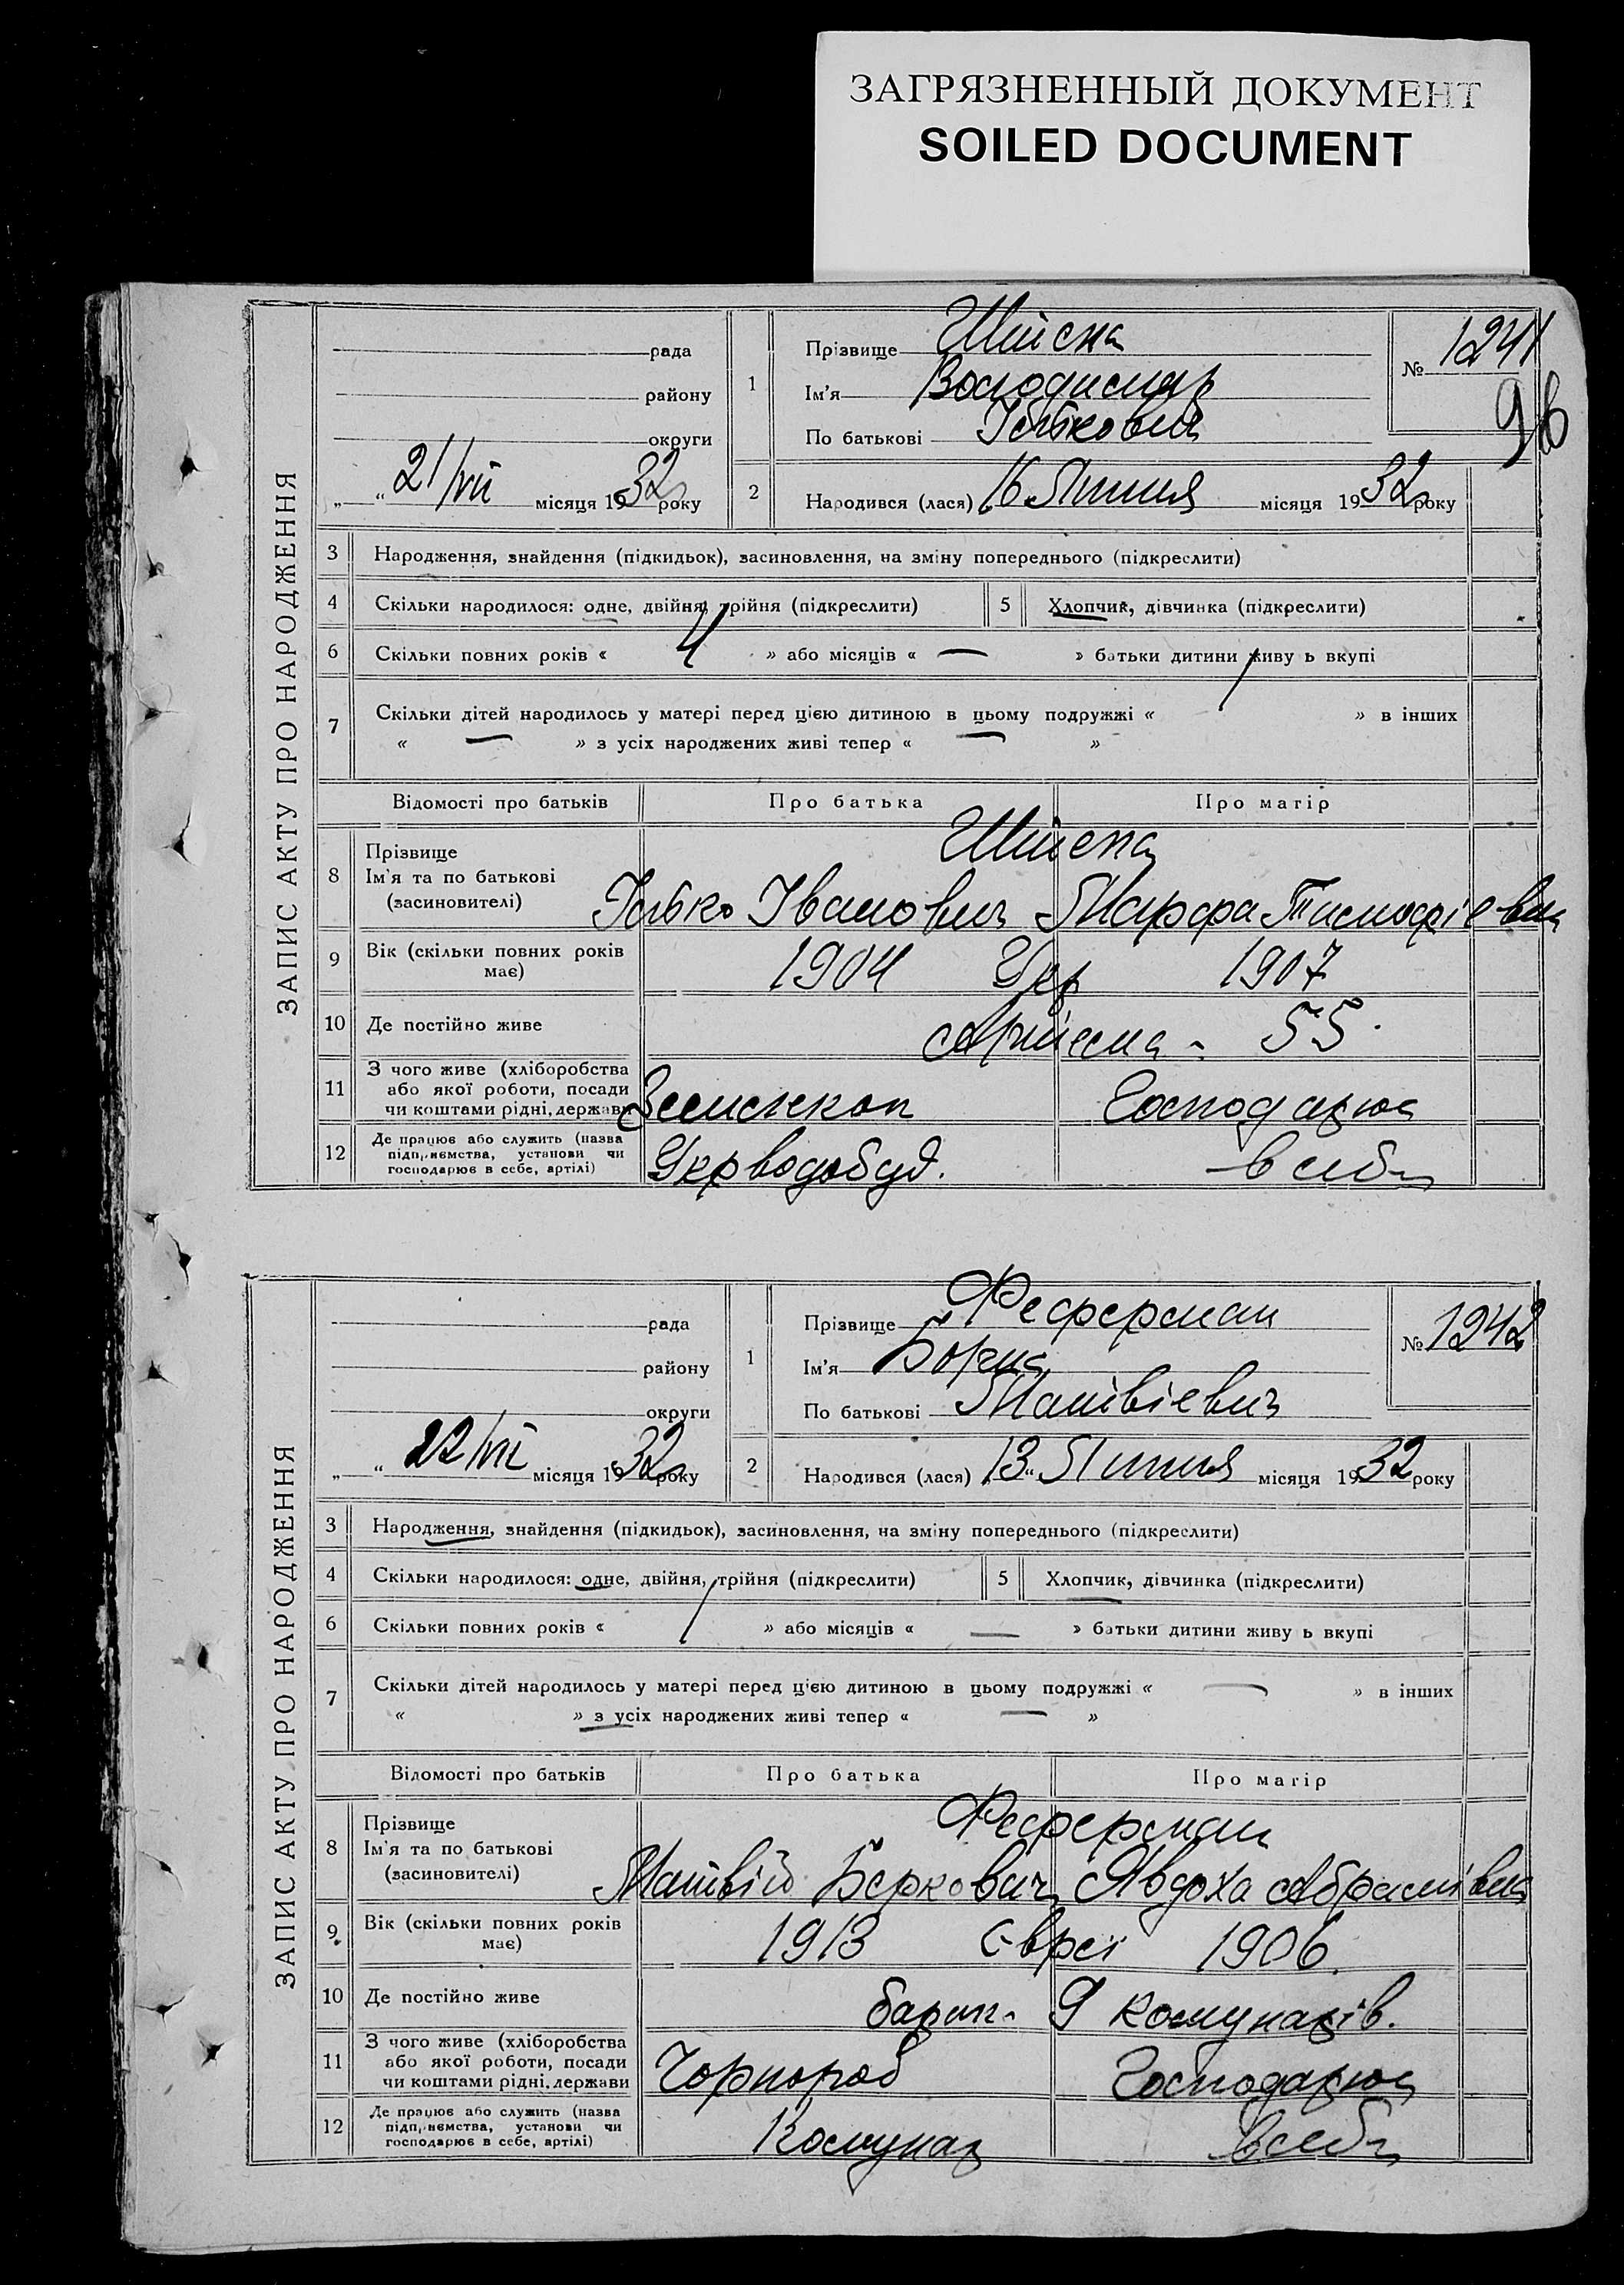 ЗАГРЯЗНЕННЫЙ ДОКУМЕНТ
SOILED DOCUMENT
ЗАПИС АКТУ ПРО НАРОДЖЕННЯ
рада
району
округи
„ “ 21/VII місяця 1932 року
1 Прізвище
Ім'я Володимир
По батькові
№ 1241
2 Народився (лася) 16 Липня місяця 1932 року
3 Народження, знайдення (підкидьок), засиновлення, на зміну попереднього (підкреслити)
4 Скільки народилося: одне, двійня, трійня (підкреслити) 5 Хлопчик, дівчинка (підкреслити)
6 Скільки повних років « 4 » або місяців « — » батьки дитини живу ь вкупі
7 Скільки дітей народилось у матері перед цією дитиною в цьому подружжі « / » в інших
« — » з усіх народжених живі тепер « — »
Відомості про батьків Про батька Про матір
8 Прізвище
Ім'я та по батькові
(засиновителі)
Іванович Марфа
9 Вік (скільки повних років має) 1904 Укр 1907
10 Де постійно живе 55
11 З чого живе (хліборобства
або якої роботи, посади
чи коштами рідні, держави Землекоп Господарює
12 Де працює або служить (назва
підприємства, установи чи
господарює в себе, артілі) Укрводобуд. в себе
ЗАПИС АКТУ ПРО НАРОДЖЕННЯ
рада
району
округи
„ “ 22/VII місяця 1932 року
1 Прізвище Феферман
Ім'я Борис
По батькові Матвієвич
№ 1242
2 Народився (лася) 13 „ Липня місяця 1932 року
3 Народження, знайдення (підкидьок), засиновлення, на зміну попереднього (підкреслити)
4 Скільки народилося: одне, двійня, трійня (підкреслити) 5 Хлопчик, дівчинка (підкреслити)
6 Скільки повних років « / » або місяців « — » батьки дитини живу ь вкупі
7 Скільки дітей народилось у матері перед цією дитиною в цьому подружжі « — » в інших
« » з усіх народжених живі тепер « — »
Відомості про батьків Про батька Про матір
8 Прізвище
Ім'я та по батькові
(засиновителі)
Феферман
Матвій Беркович Явдоха Абрамівна
9 Вік (скільки повних років має) 1913 Євреї 1906
10 Де постійно живе 9 Комунарів.
11 З чого живе (хліборобства
або якої роботи, посади
чи коштами рідні, держави Чорнороб Господарює
12 Де працює або служить (назва
підприємства, установи чи
господарює в себе, артілі) Комунар в себе